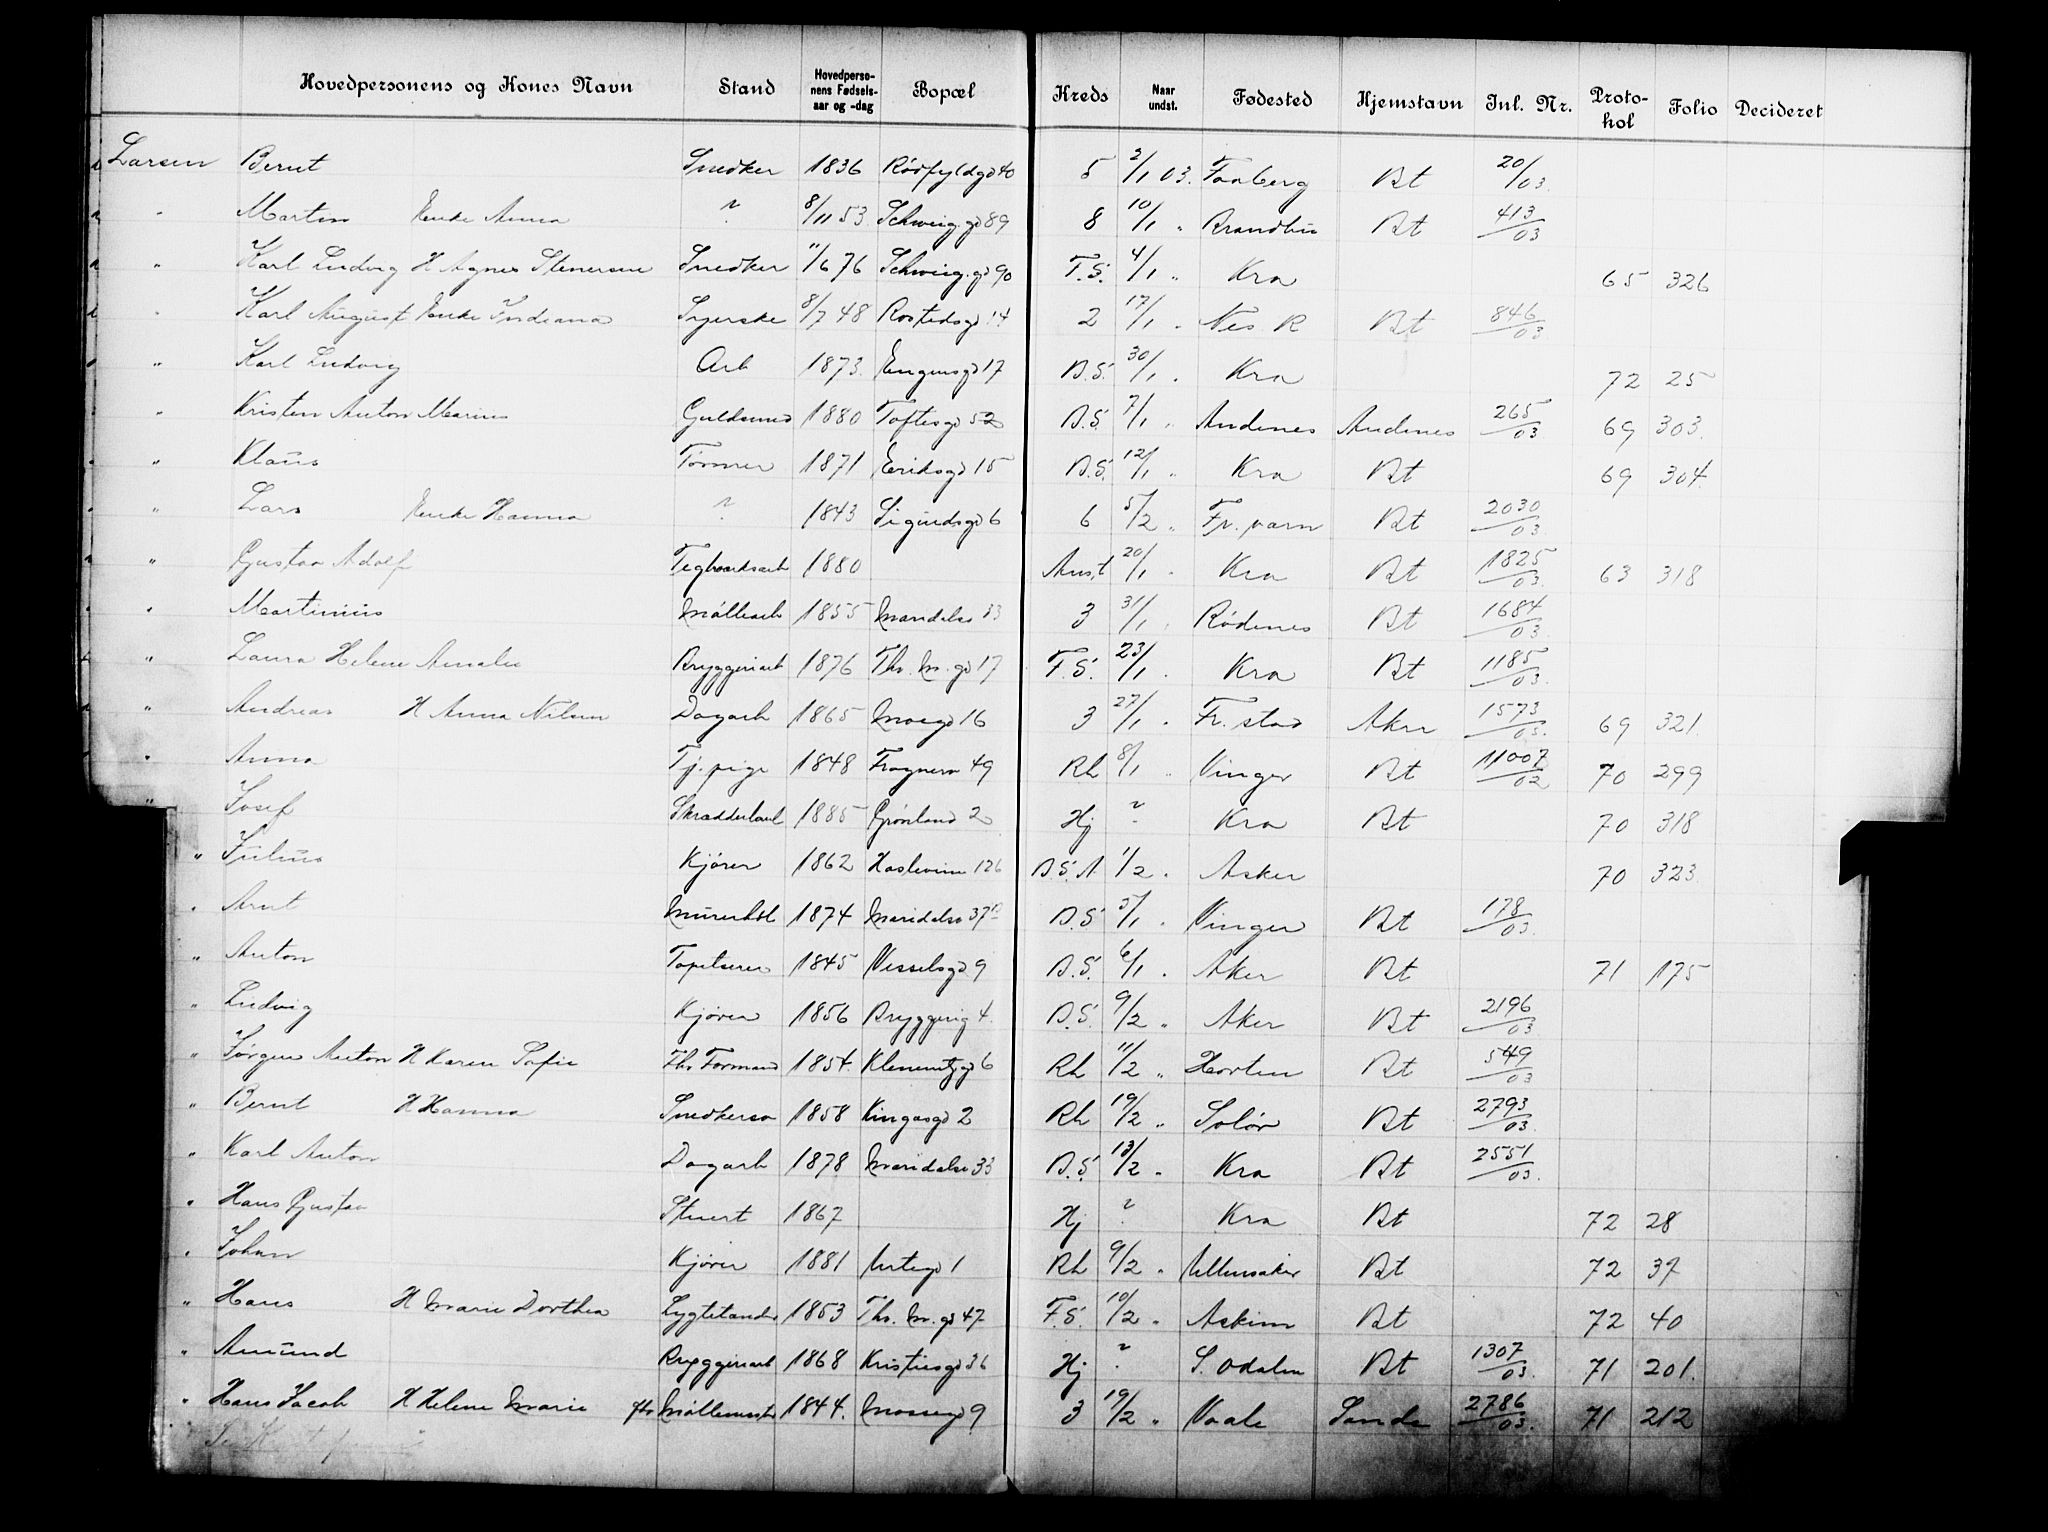 Hovedpersonens og Kones Navn Stand Hovedpersonens Fødselsaar og -dag Bopæl Kreds Naar undst. Fødested Hjemstavn Inl. Nr. Protokol Folio Decideret
Larsen Bernt Snedker 1836 Rødfyldgd 40 5 2/1 03. Faaberg Bt 20/03.
" Martin Enke Anna ? 8/11 53 Schweig.gd 89 8 10/1 " Brandbu Bt 413/03
" Karl Ludvig H Agnes Stenersen Snedker 11/6 76 Schweig.gd 90 F.S. 4/1 " Kra 65 326
" Karl August Enke Indiana Syerske 8/7 48 Rostedsgd 14 2 17/1 " Nes. R Bt 846/03
" Karl Ludvig Arb 1873. Enggensgd 17 B.S. 30/1 " Kra 72 25
" Kristen Anton Marius Guldsmed 1880 Toftesgd 52 B.S. 7/1 " Andenes Andenes 265/03 69 303.
" Klaus Tømmer 1871 Eriksgd 15 B.S. 12/1 " Kra Bt 69 304.
" Lars Enke Hanna ? 1843 Sigurdsgd 6 6 5/2 " Fr.værn Bt 2030/03
" Gustav Adolf Teglværksarb 1880 Anst 20/1 " Kra Bt 1825/03. 63 318
" Martinius Møllearb 1855 Maridalsv 33 3 31/1 " Rødenes Bt 1684/03.
" Laura Helene Amalie Bryggeriarb 1876 Th. M. gd 17 F.S. 23/1 " Kra Bt 1185/03.
" Andreas H Anna Nilsen Dagarb 1865 Mosgd 16 3 27/1 " Fr.stad Aker 1573/03. 69 321.
" Anna Tj.pige 1848 Frognerv 49 Rh 8/1 " Vinger Bt 11007/02 70 299
" Josef Skrædderlærl 1885 Grønland 2 Hj ? Kra Bt 70 318
" Julius Kjører 1862 Hasleveien 126 B.S.A 1/2 " Asker 70 323.
" Arnt Murerhdl 1874 Maridalsv 37 B.S. 5/1 " Vinger Bt 178/03.
" Anton Tapetserer 1845 Wesselsgd 9 B.S. 6/1 " Aker Bt 71 175
" Ludvig Kjører 1856 Bryggerig 4. B.S. 9/2 " Aker Bt 2196/03
" Jørgen Anton H Karen Sofie Fhv Formand 1854. Klemetsgd 6 Rh 11/2 " Horten Bt 549/03
" Bernt H Hanna Snedkersv 1858 Kingosgd 2 Rh 19/2 " Solør Bt 2793/03.
" Karl Anton Dagarb 1878 Maridalsv 33 B.S. 13/2 " Kra Bt 2551/03.
" Hans Gustav Stuert 1867 Hj ? Kra Bt 72 28
" Johan Kjører 1881 Urtegd 1 Rh 9/2 " Ullensaker Bt 72 37
" Hans H Marie Dorthea Lygtetænder 1853 Th. M. gd 47 F.S. 10/2 " Askim Bt 72 40
" Amund Bryggeriarb 1868 Kristiesgd 36 Hj ? S. Odalen Bt 1307/03. 71 201.
" Hans Jacob H Helene Marie fhv Møllemester 1844. Mossegd 9 3 19/2 " Vaale Sande 2786/03. 71 212